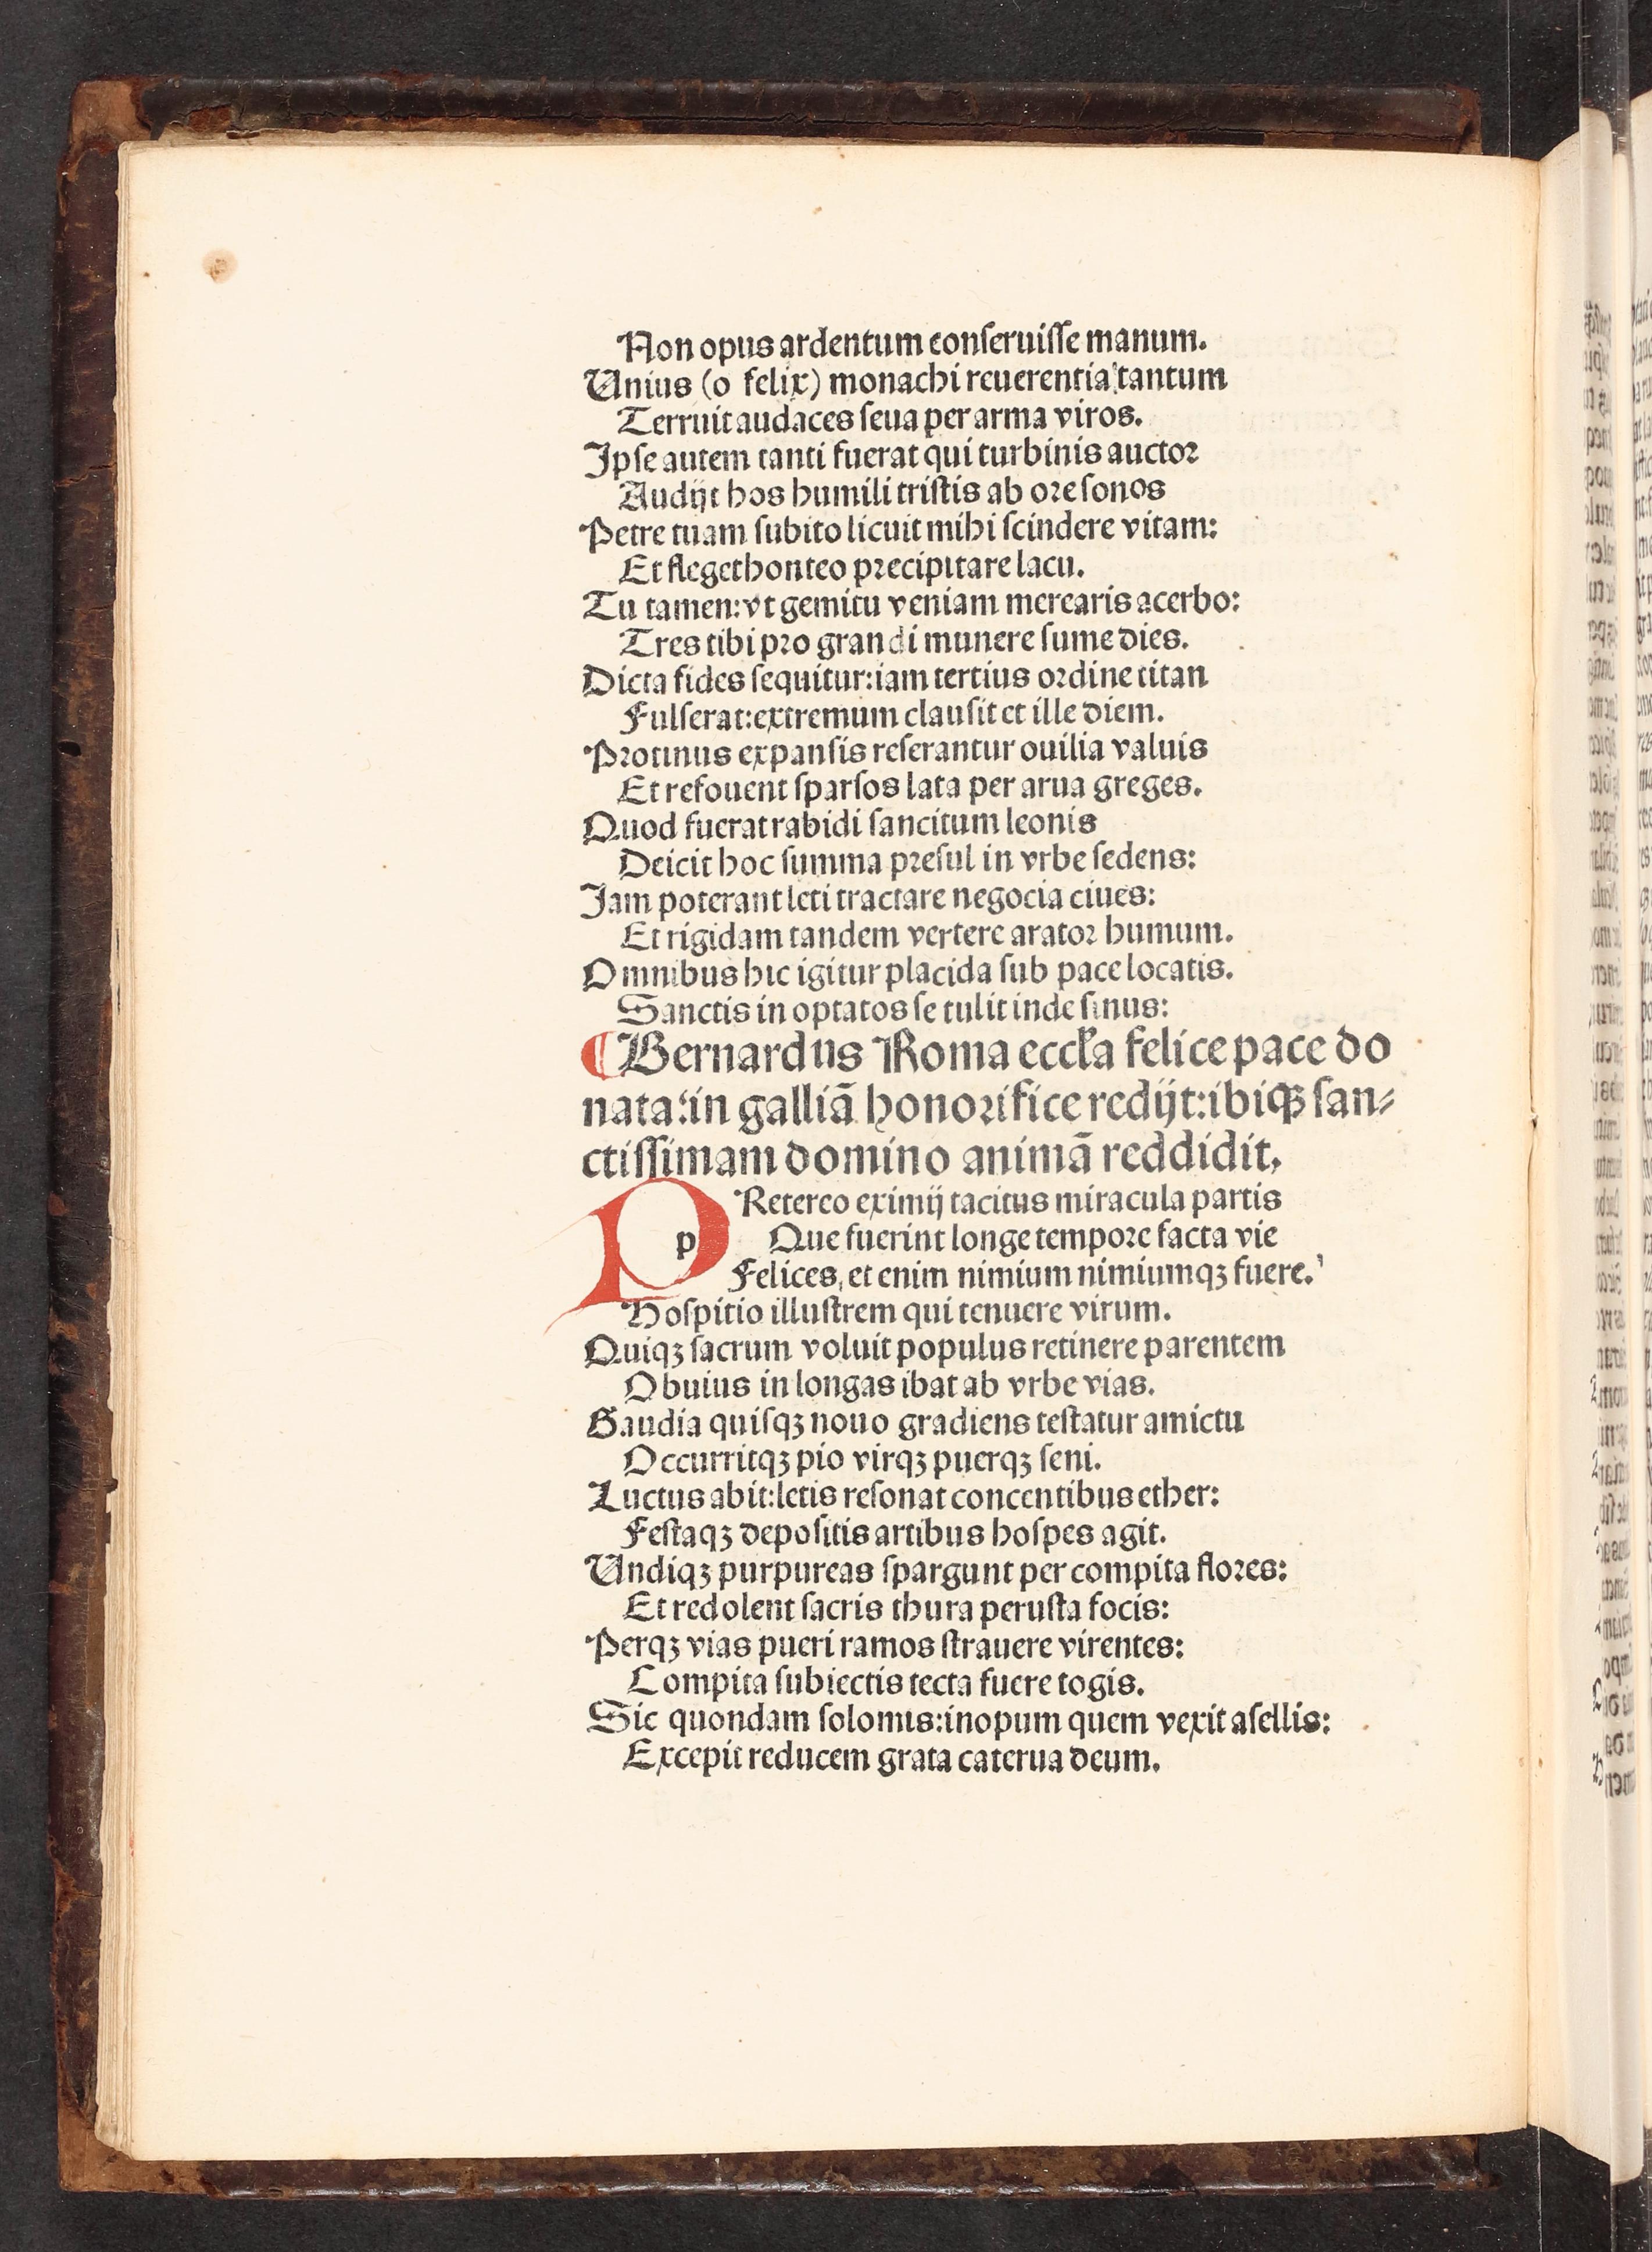 Non opus ardentum conſeruiſſe manum.
Unius (o felix) monachi reuerentia tantum
Terruit audaces ſeua per arma viros.
Ipſe autem tanti fuerat qui turbinis auctoꝛ
Audijt hos humili triſtis ab oꝛe ſonos
Petre tuam ſubito licuit mihi ſcindere vitam:
Et flegethonteo pꝛecipitare lacu.
Tu tamen: vt gemitu veniam merearis acerbo:
Tres tibi pꝛo grandi munere ſume dies.
Dicta fides ſequitur: iam tertius oꝛdine titan
Fulſerat: extremum clauſit et ille diem.
Pꝛotinus expanſis reſerantur ouilia valuis
Et refouent ſparſos lata per arua greges.
Quod fuerat rabidi ſancitum leonis
Deicit hoc ſumma pꝛeſul in vrbe ſedens:
Jam poterant leti tractare negocia ciues:
Et rigidam tandem vertere aratoꝛ humum.
Omnibus hic igitur placida ſub pace locatis.
Sanctis in optatos ſe tulit inde ſinus:
¶ Bernardus Roma eccl̓a felice pace do
nata: in galliā honoꝛifice redijt: ibiqꝫ ſan⸗
ctiſſimam domino animā reddidit,
p Retereo eximij tacitus miracula partis
Que fuerint longe tempoꝛe facta vie
Felices, et enim nimium nimiumqꝫ fuere.
Hoſpitio illuſtrem qui tenuere virum.
Quiqꝫ ſacrum voluit populus retinere parentem
Obuius in longas ibat ab vrbe vias.
Gaudia quiſqꝫ nouo gradiens teſtatur amictu
Occurritqꝫ pio virqꝫ puerqꝫ ſeni.
Luctus abit: letis reſonat concentibus ether:
Feſtaqꝫ depoſitis artibus hoſpes agit.
Undiqꝫ purpureas ſpargunt per compita floꝛes:
Et redolent ſacris thura peruſta focis:
Perqꝫ vias pueri ramos ſtrauere virentes:
Compita ſubiectis tecta fuere togis.
Sic quondam ſolomis: inopum quem vexit aſellis:
Excepit reducem grata caterua deum.